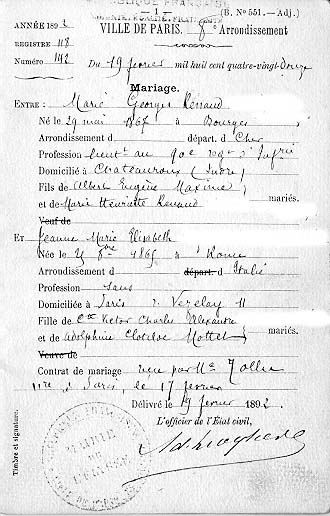 — 1 —
LIBERTÉ, ÉGALITÉ, FRATERNITÉ
(B. N° 551. — Adj.)
ANNÉE 1892 VILLE DE PARIS. 8e Arrondissement
REGISTRE 118
NUMÉRO 142 Du 19 février mil huit cent quatre-vingt-douze
Mariage.
ENTRE : Marie Georges Renaud
Né le 29 mai 1867 à Bourges
Arrondissement d départ. d Cher
Profession lieut. au 90e rég. d'Infrie
Domicilié à Chateauroux (Indre)
Fils de Albert Eugène Maxime
et de Marie Henriette Renaud
mariés.
Veuf de
ET Jeanne Marie Elisabeth
Née le 1865 à Rome
Arrondissement d départ. d Italie
Profession Sans
Domiciliée à Paris r. Vezelay 11
Fille de Victor Charles Alexandre
et de Adolphine Clotilde Mottet
mariés.
Veuve de
Contrat de mariage reçu par Me
à Paris, le 17 février
Délivré le 19 février 1892
L'officier de l'État civil,
Timbre et signature.
MAIRIE